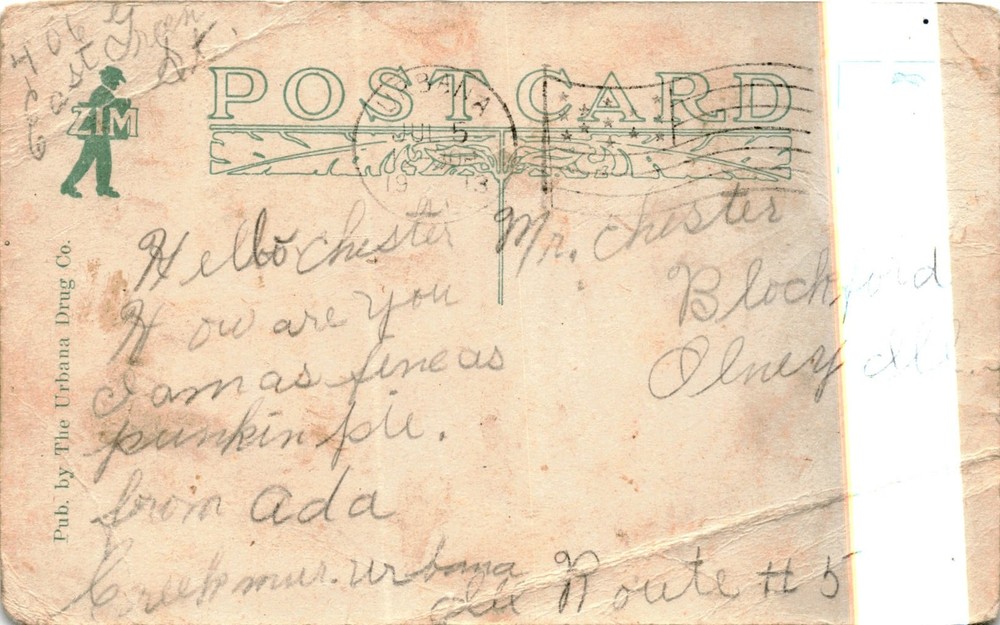 406
East Green
St.
ZIM
POST CARD
URBANA
JUL 5
1913
Pub. by The Urbana Drug Co.
Hello Chester
How are you
I am as fine as
punkin pie.
from Ada
Creekmur. Urbana
Ill
Mr. Chester
Blockford
Olney Ill.
Route # 5